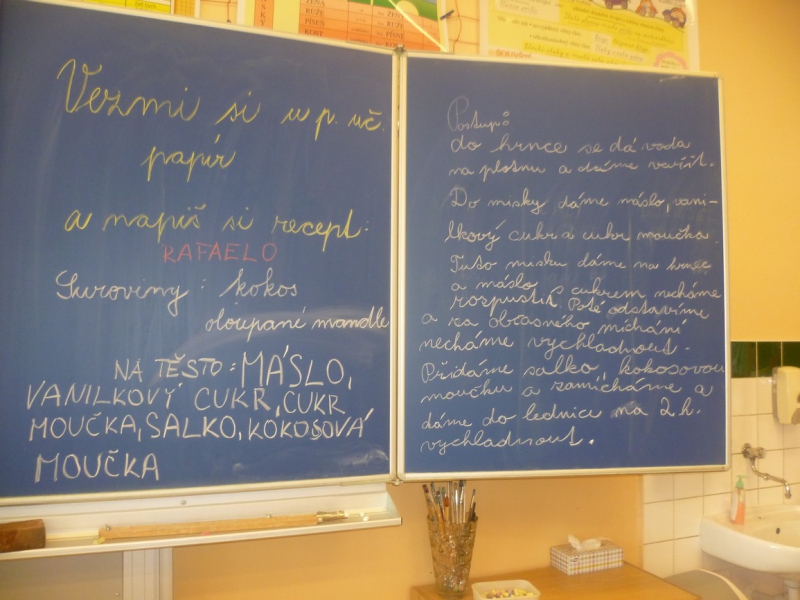 Vezmi si u p. uč.
papír
a napiš si recept:
RAFAELO
Suroviny: kokos
oloupané mandle
NA TĚSTO: MÁSLO,
VANILKOVÝ CUKR, CUKR
MOUČKA, SALKO, KOKOSOVÁ
MOUČKA
Postup:
do hrnce se dá voda
na plotnu a dáme vařit.
Do misky dáme máslo, vani-
lkový cukr a cukr moučka.
Tuto misku dáme na hrnec
a máslo s cukrem necháme
rozpustit. Poté odstavíme
a za občasného míchání
necháme vychladnout.
Přidáme salko, kokosovou
moučku a zamícháme a
dáme do lednice na 2 h.
vychladnout.
ŽENA
RŮŽE
PÍSEŇ
KOST